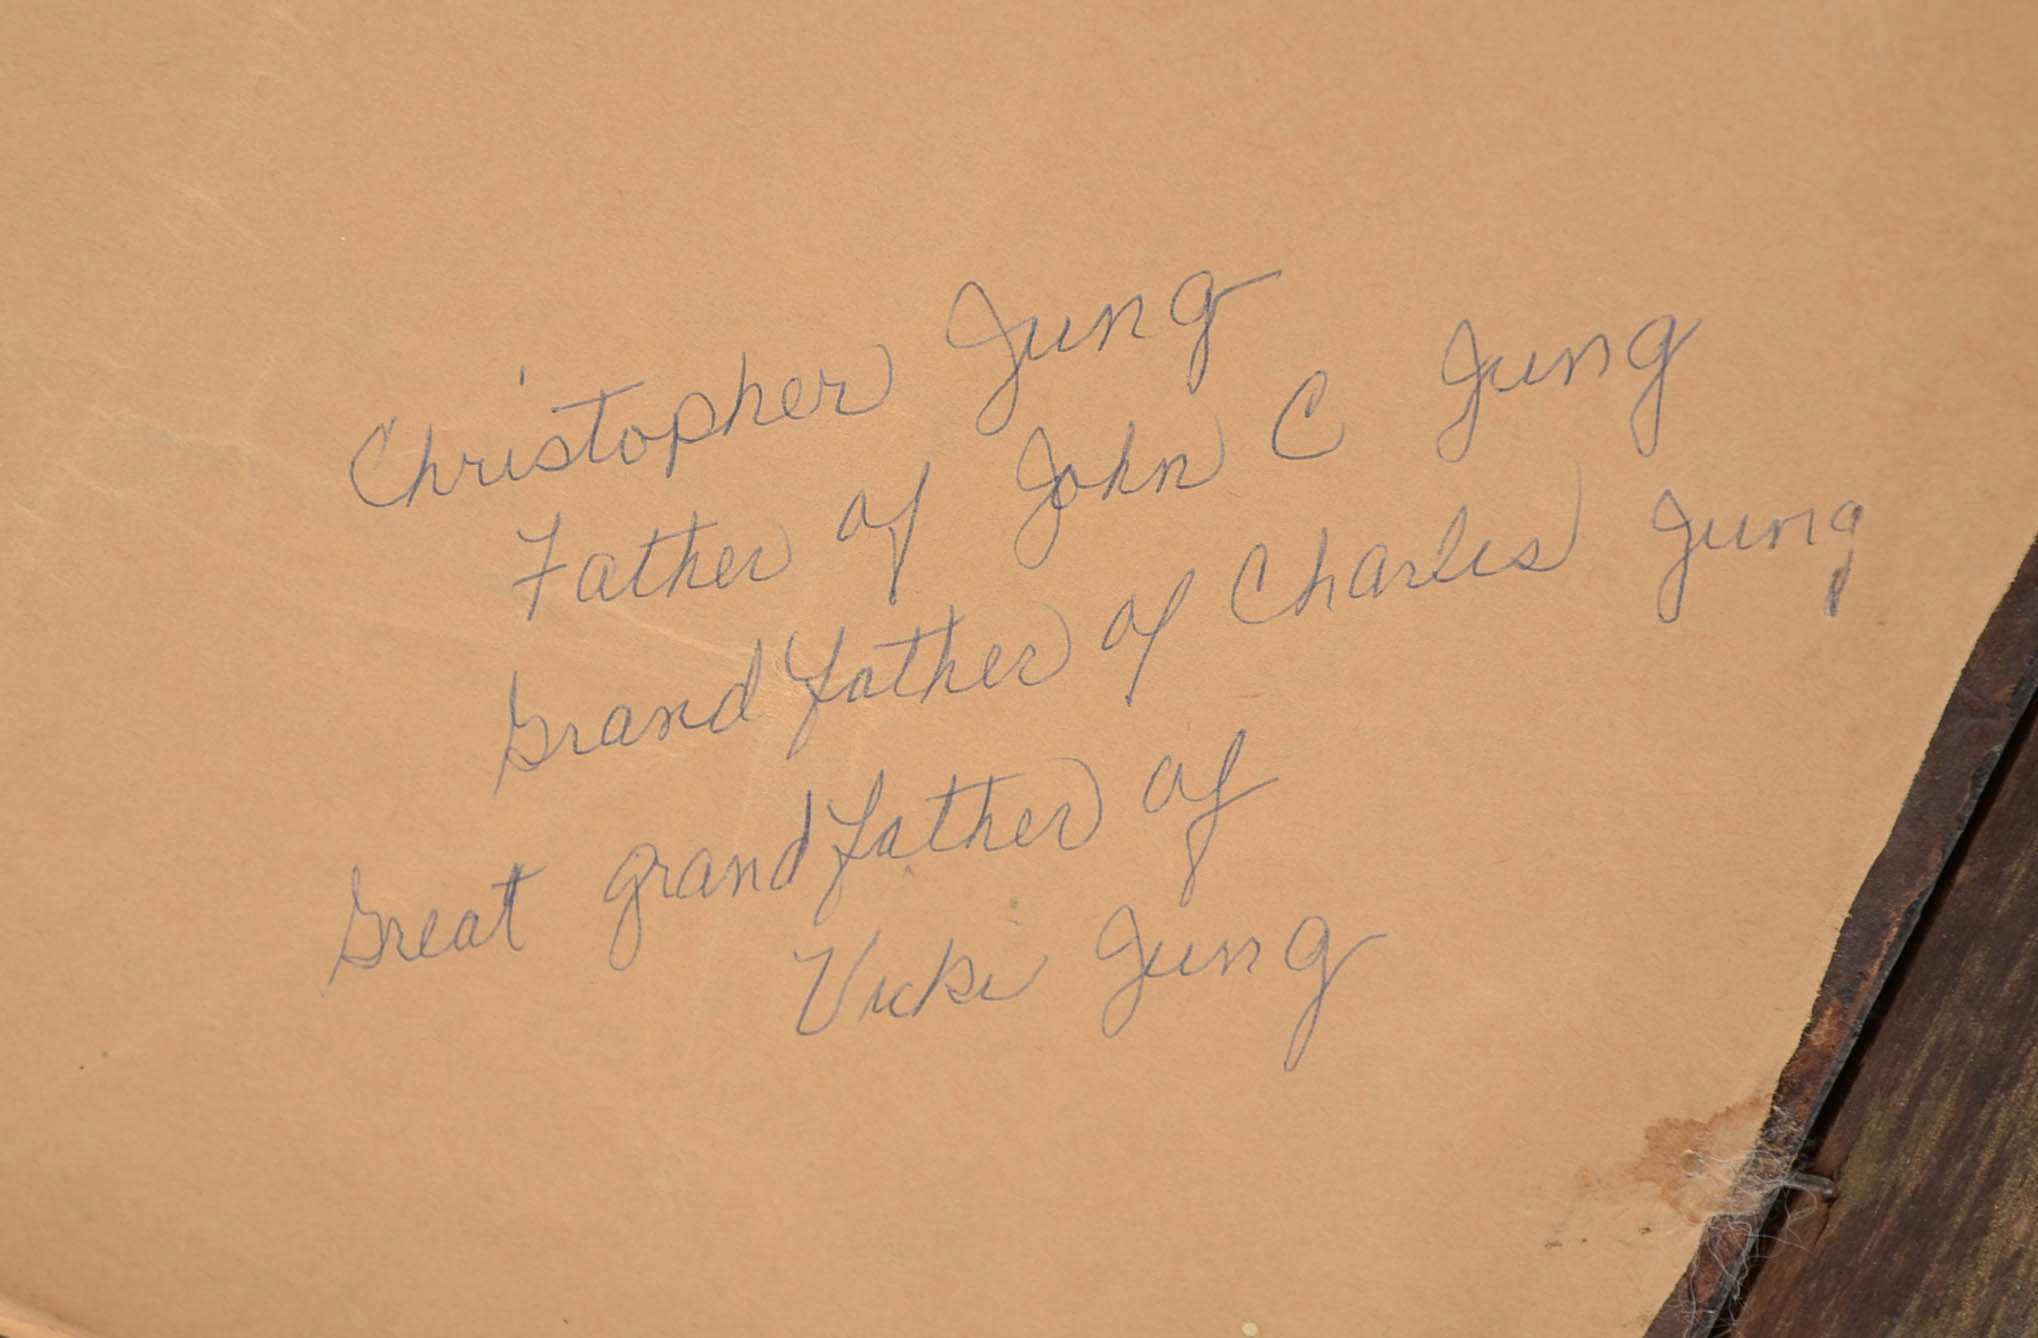 Christopher Jung
Father of John C Jung
Grandfather of Charles Jung
Great grandfather of
Vicki Jung